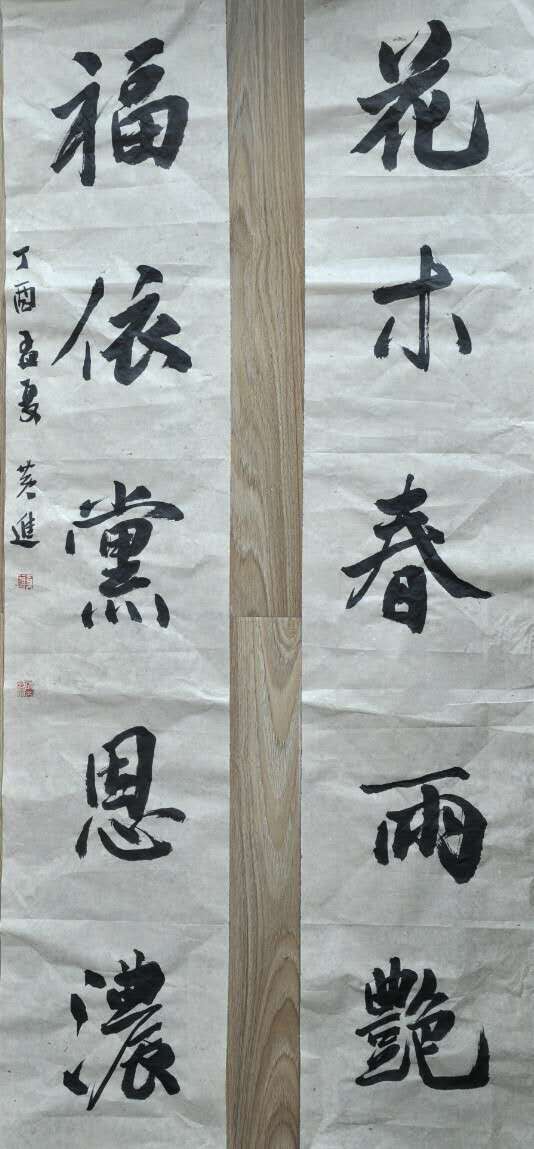 花木春雨艷
福依黨恩濃
丁酉孟夏 黄進